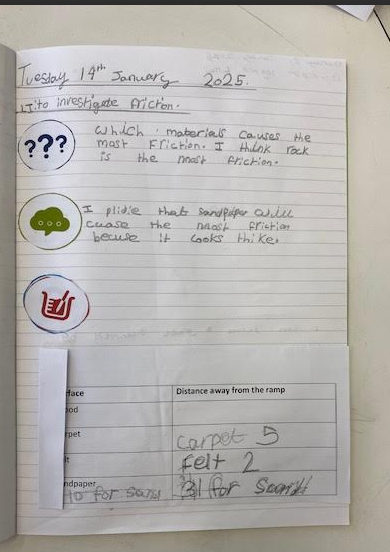 Tuesday 14th January 2025.
LI: to investigate friction.
???
Which materials causes the
most Friction. I think rock
is the most friction.
I plidie that sandpaper will
cuase the most friction
becuse it looks thike.
face
Distance away from the ramp
ood
rpet
carpet 5
lt
Felt 2
ndpaper
10 for sand
31 for Sand